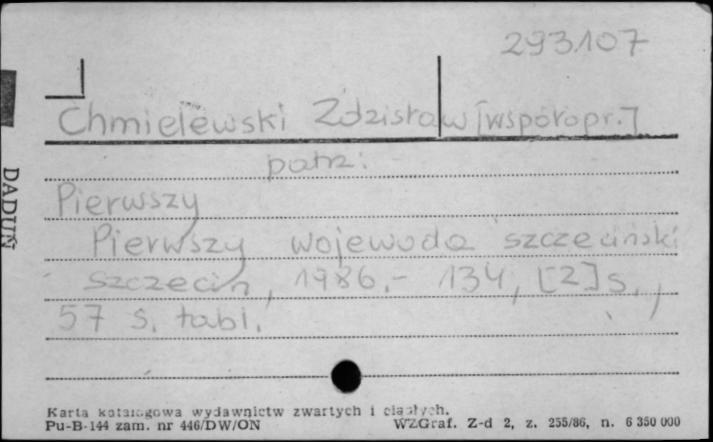 293107
Chmielewski Zdzisław [współopr.]
patrz:
Pierwszy
Pierwszy wojewoda szczeciński
Szczecin, 1986.- 134, [2] s.,
57 s. tabl.
DADUŃ
Karta katalogowa wydawnictw zwartych i ciągłych.
Pu-B-144 zam. nr 446/DW/ON
WZGraf. Z-d 2, z. 255/86, n. 6 350 000